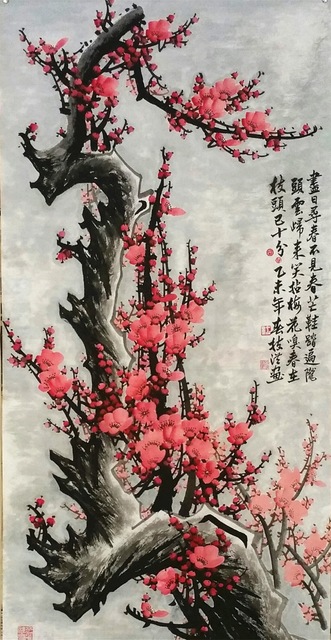 盡日尋春不見春芒鞋踏遍隴
頭雲歸来笑拈梅花嗅春在
枝頭已十分乙未年